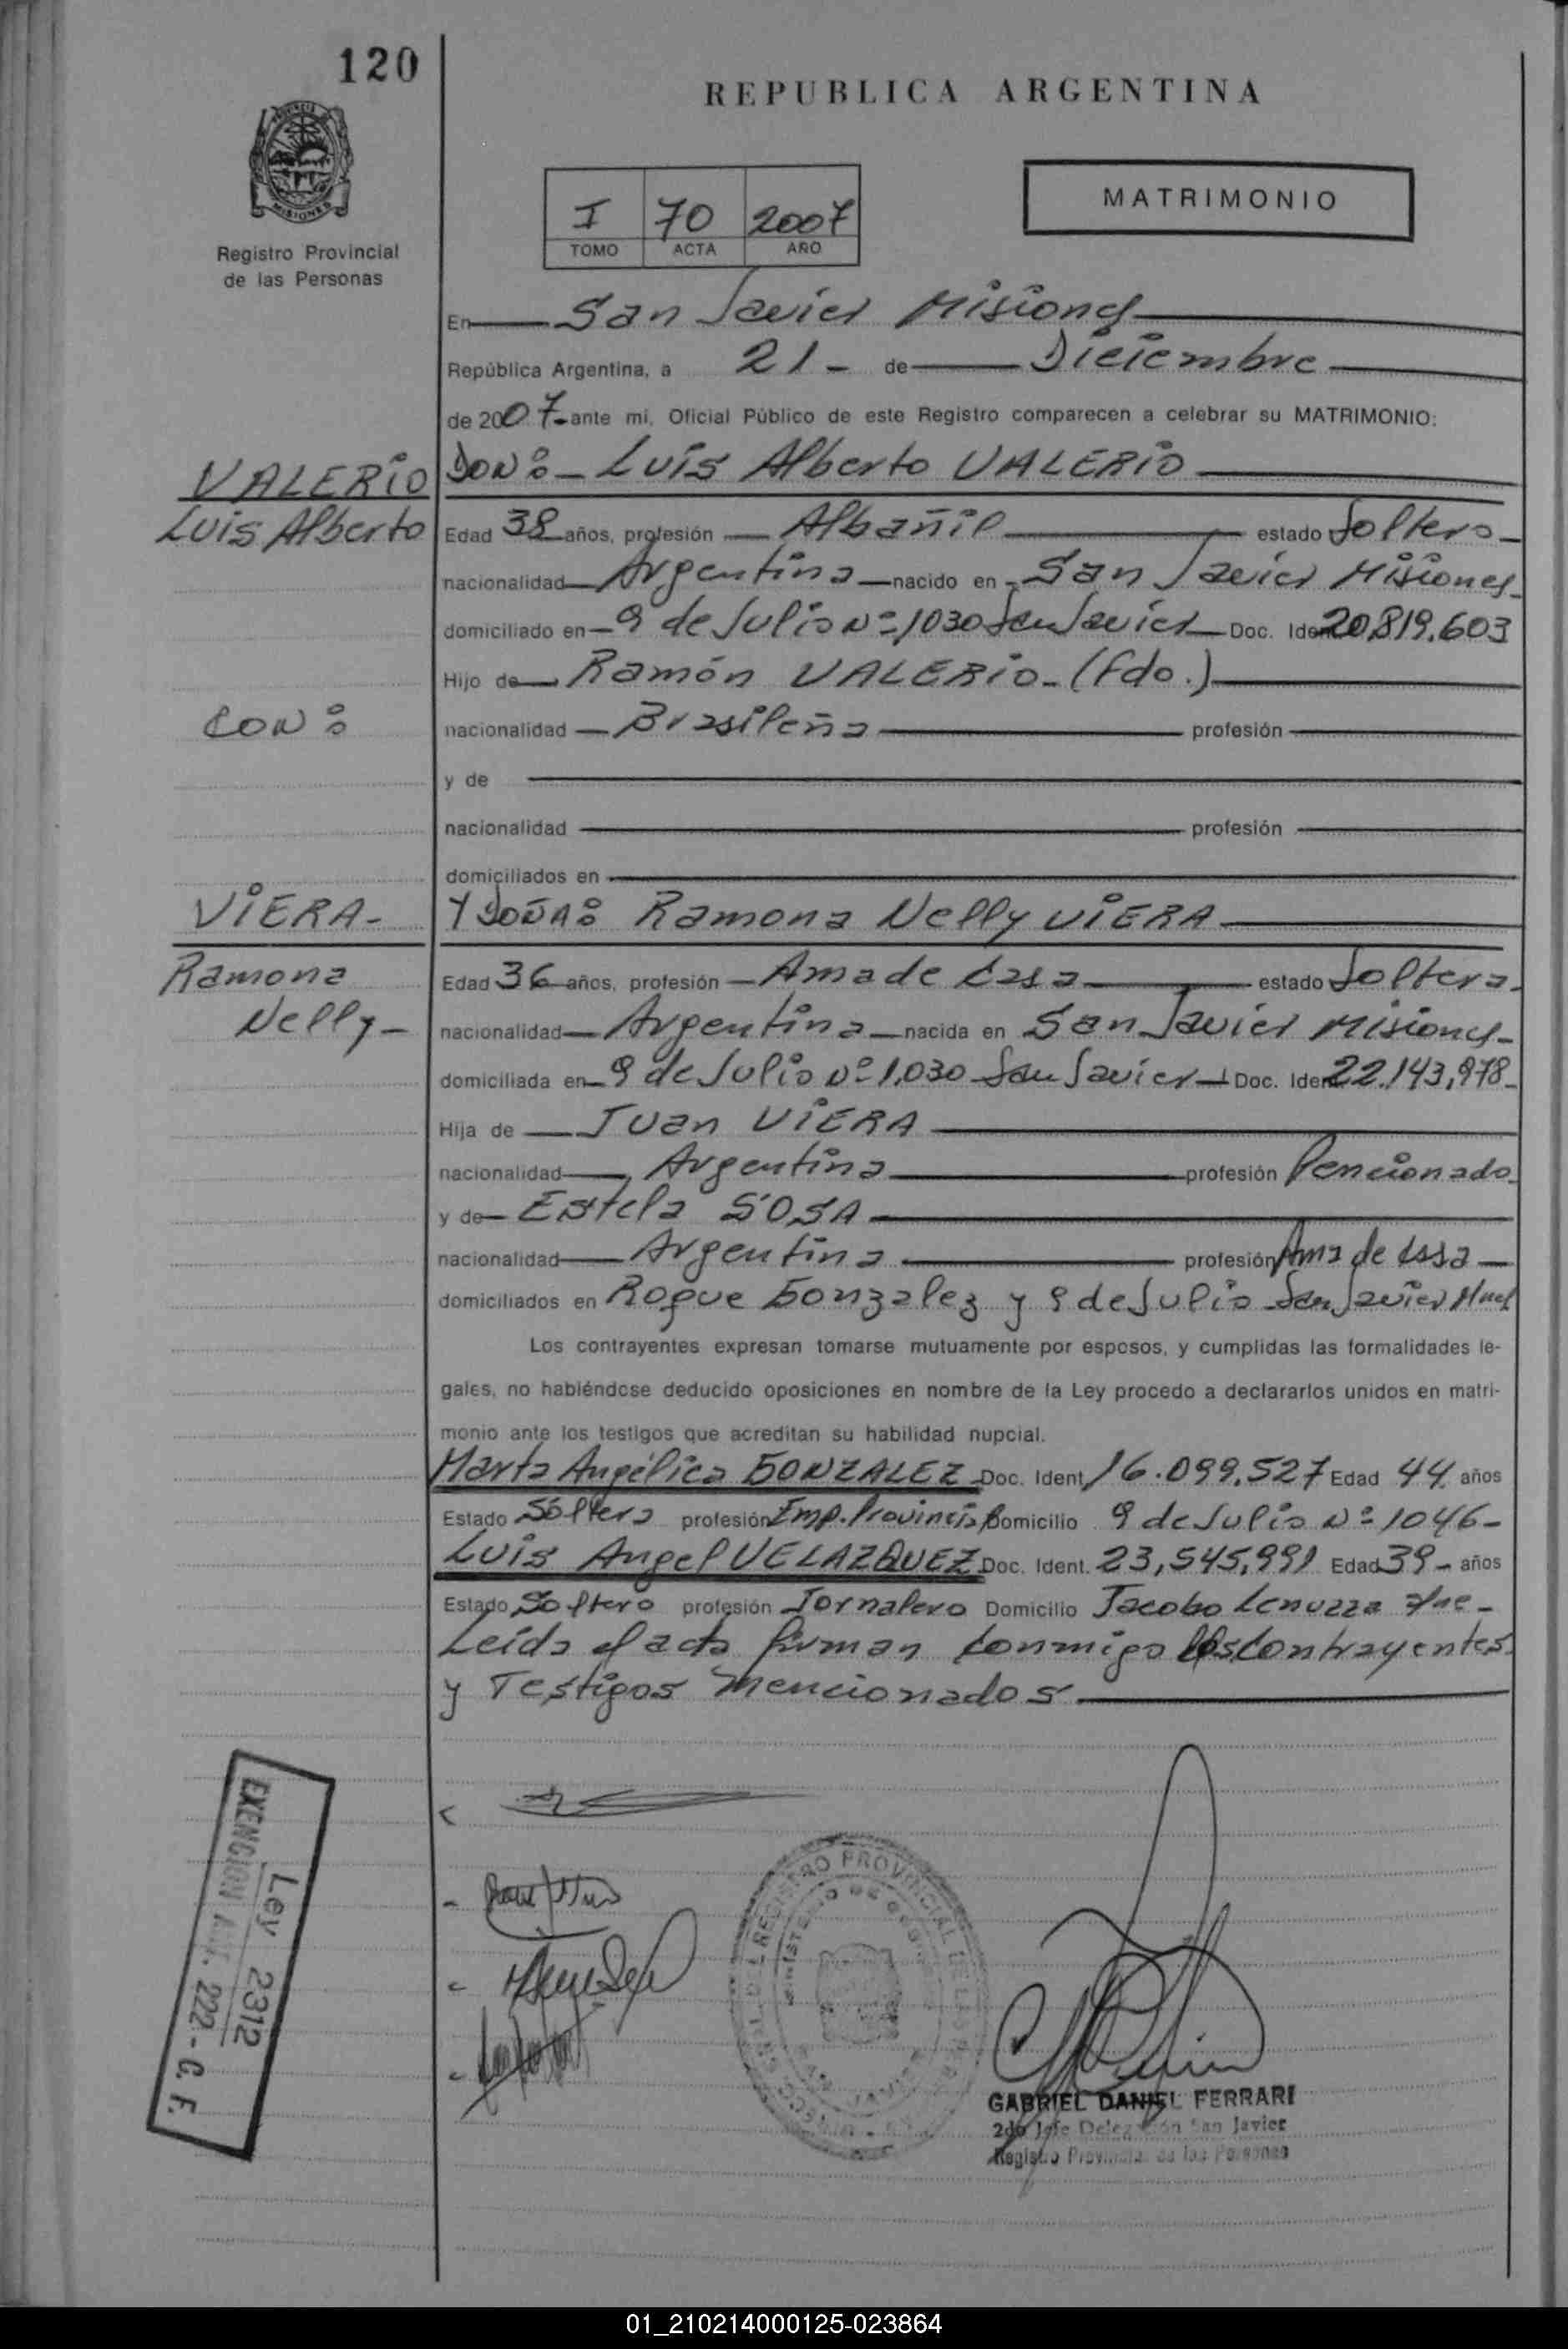 120
REPUBLICA ARGENTINA
MATRIMONIO
I 70 2007
TOMO ACTA AÑO
MISIONES
Registro Provincial
de las Personas
En San Javier Misiones
República Argentina, a 21 - de Diciembre
de 2007 ante mi, Oficial Público de este Registro comparecen a celebrar su MATRIMONIO:
VALERIO
Luis Alberto
DON: Luis Alberto VALERIO
Edad 38 años, profesión Albañil estado Soltero
nacionalidad Argentina nacido en San Javier Misiones
domiciliado en 9 de Julio Nº 1030 San Javier Doc. Ident 20,819.603
Hijo de Ramón VALERIO. (fdo.)
CON:
nacionalidad Brasileña profesión
y de
nacionalidad profesión
domiciliados en
VIERA-
Ramona
Nelly-
Y DOÑA: Ramona Nelly VIERA
Edad 36 años, profesión Ama de Casa estado Soltera
nacionalidad Argentina nacida en San Javier Misiones
domiciliada en 9 de Julio Nº 1.030 San Javier Doc. Ident 22.143,978
Hija de Juan VIERA
nacionalidad Argentina profesión Pencionado
y de Estela SOSA
nacionalidad Argentina profesión Ama de Casa
domiciliados en Roque Gonzalez y 9 de Julio San Javier Mnes
Los contrayentes expresan tomarse mutuamente por esposos, y cumplidas las formalidades le-
gales, no habiéndose deducido oposiciones en nombre de la Ley procedo a declararlos unidos en matri-
monio ante los testigos que acreditan su habilidad nupcial.
Marta Angélica GONZALEZ Doc. Ident. 16.099.527 Edad 44 años
Estado Soltera profesión Emp. Provincia Domicilio 9 de Julio Nº 1046-
Luis Angel VELAZQUEZ Doc. Ident. 23,545,991 Edad 39- años
Estado Soltero profesión Jornalero Domicilio Jacobo
Leida el acta firman conmigo los contrayentes
y Testigos mencionados
Ley 2312
EXENCION Art. 222 - C. F.
REGISTRO PROVINCIAL DE LAS
GABRIEL DANIEL FERRARI
2do Jefe Delegación San Javier
Registro Provincial de las Personas
01_210214000125-023864